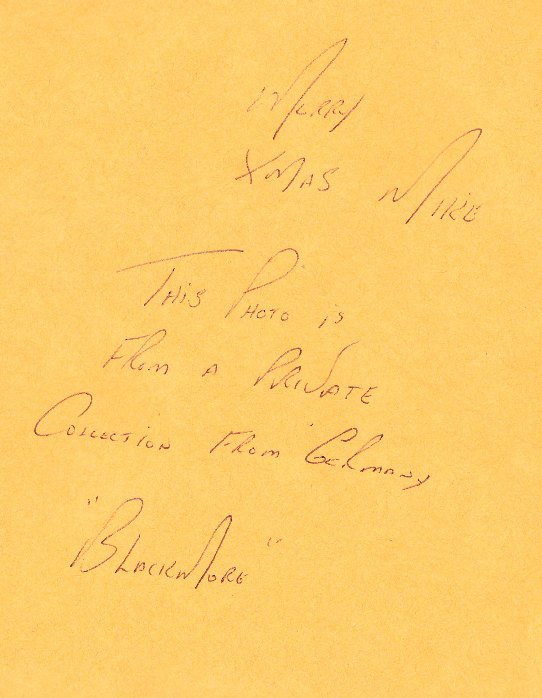 Merry
Xmas Mike
This Photo is
From a Private
Collection From Germany
"Blackmore"